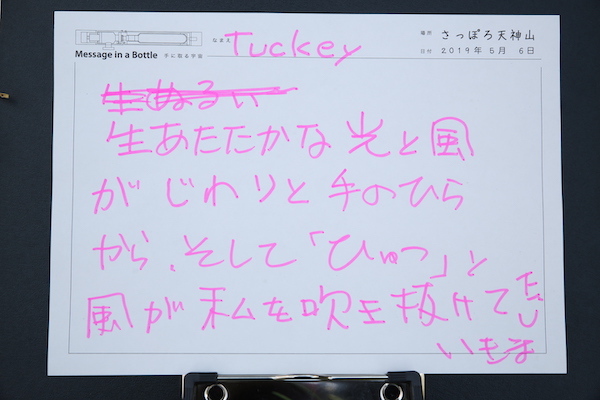 Message in a Bottle 手に取る宇宙
なまえ Tuckey
場所 さっぽろ天神山
日付 2019年5月 6日
生ぬるい
生あたたかな光と風
がじわりと手のひら
から、そして「ひゅっ」と
風が私を吹き抜けて
いきま
した